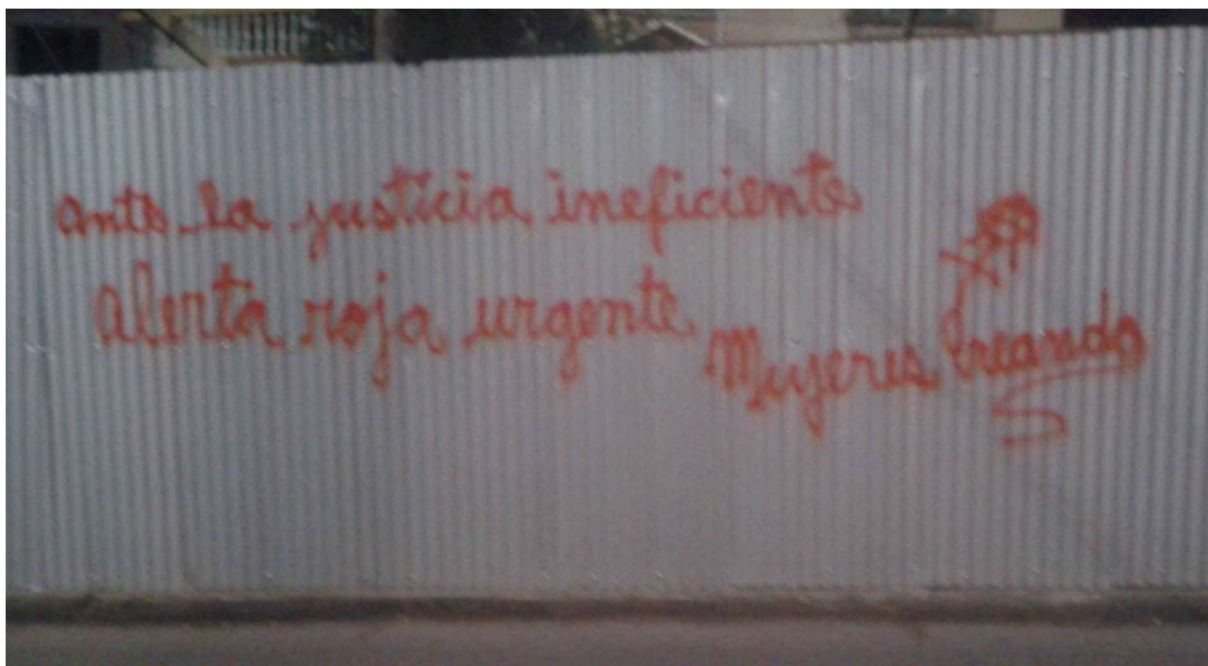 Ante la justicia ineficiente
Alerta roja urgente
Mujeres Creando